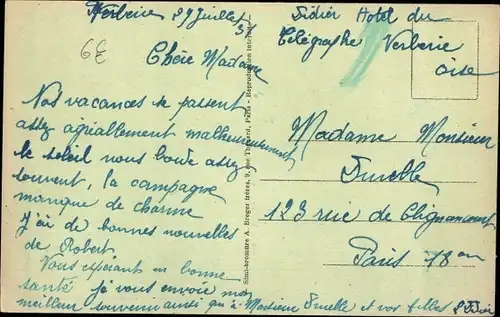 Verberie 29 Juillet 31
6E
Chère Madame
Nos vacances se passent
assez agréablement malheureusement
le soleil nous boude assez
souvent, la campagne
manque de charme
J'ai de bonnes nouvelles
de Robert
Vous espérant en bonne
santé je vous envoie mon
meilleur souvenir ainsi qu'à Monsieur et vos filles
Didier Hotel du
Télégraphe Verberie
Oise
Madame Monsieur
123 rue de Clignancourt
Paris 18em
Simi-bromure A. Breger frères, 9, rue Paris - Reproduction interdite